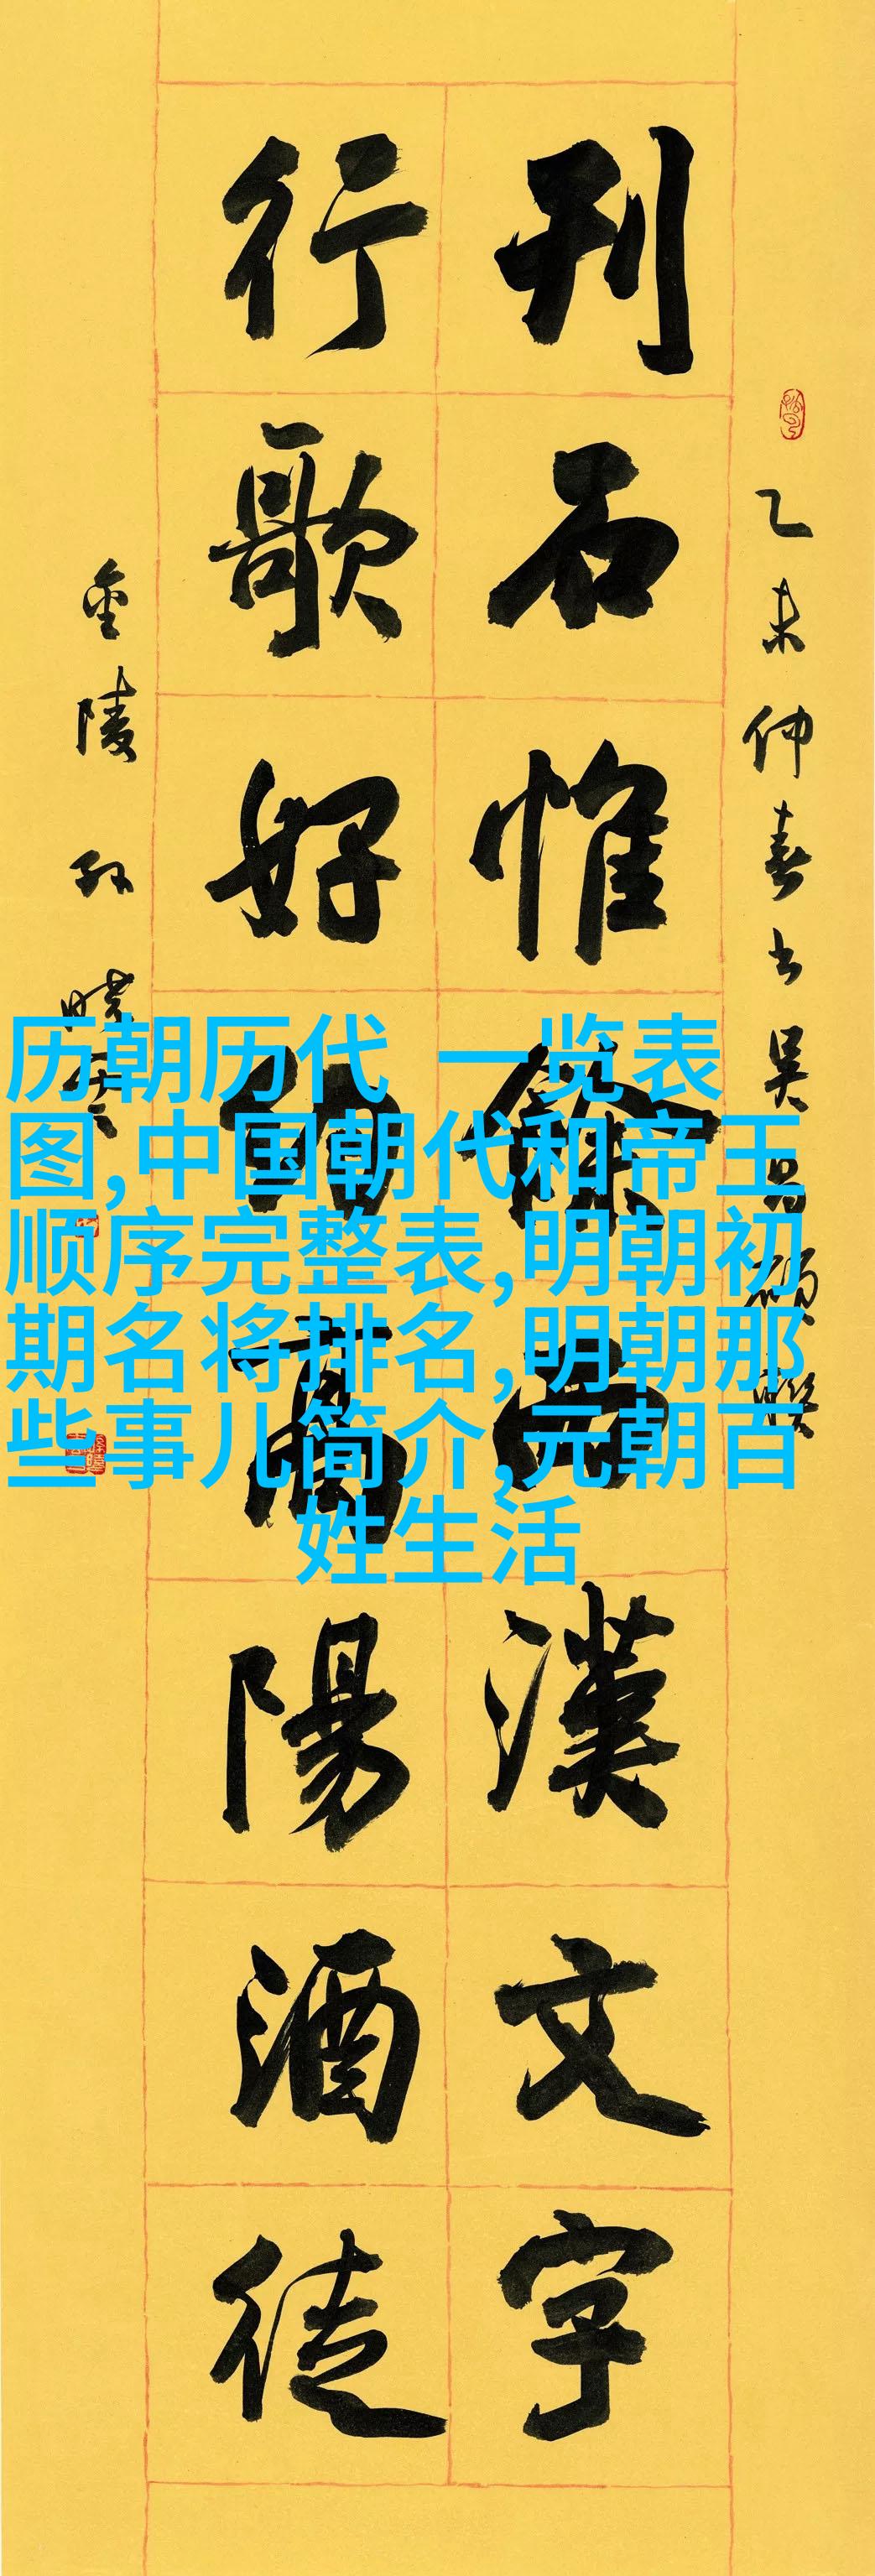 乙未仲春书吴昌碩聯
刊石惟餘西漢文字
行歌好約高陽酒徒
金陵孙曉云
历朝历代 一览表
图,中国朝代和帝王
顺序完整表,明朝初
期名将排名,明朝那
些事儿简介,元朝百
姓生活